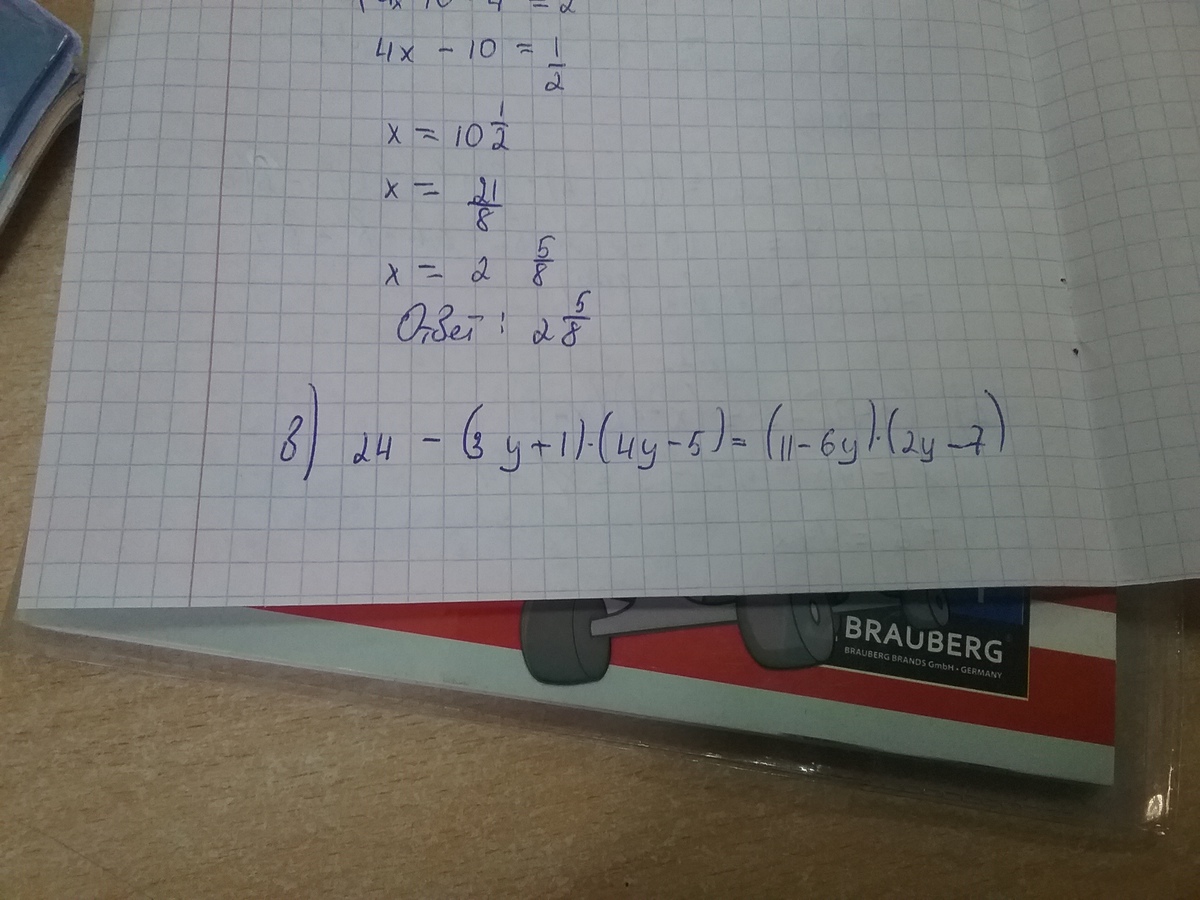 4x - 10 = 1/2
x = 10 1/2
x = 21/8
x = 2 5/8
Ответ: 2 5/8
в) 24 - (3y+1)·(4y-5) = (11-6y)·(2y-7)
BRAUBERG
BRAUBERG BRANDS GmbH • GERMANY